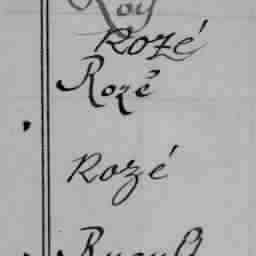 Roy
Rozé
Rozé
Rozé